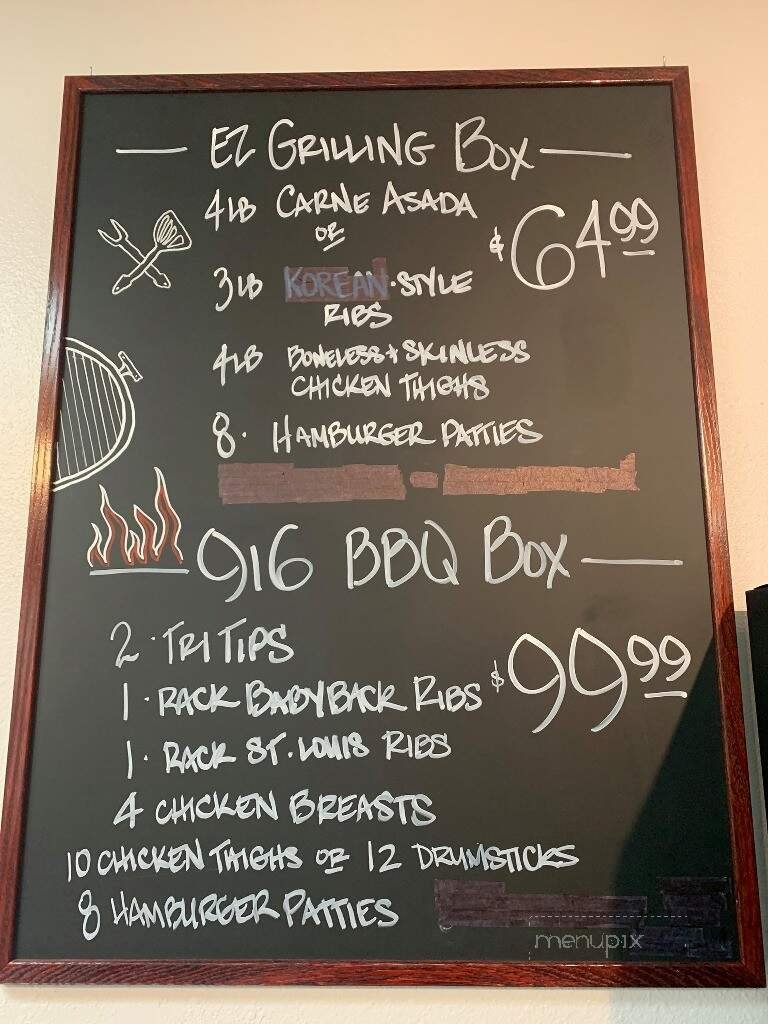 EZ GRILLING BOX
4LB CARNE ASADA
OR
$64.99
3LB KOREAN-STYLE
RIBS
4LB BONELESS + SKINLESS
CHICKEN THIGHS
8. HAMBURGER PATTIES
916 BBQ BOX
2. TRI TIPS
1. RACK BABYBACK RIBS $99.99
1. RACK ST. LOUIS RIBS
4 CHICKEN BREASTS
10 CHICKEN THIGHS OR 12 DRUMSTICKS
8 HAMBURGER PATTIES
menupix